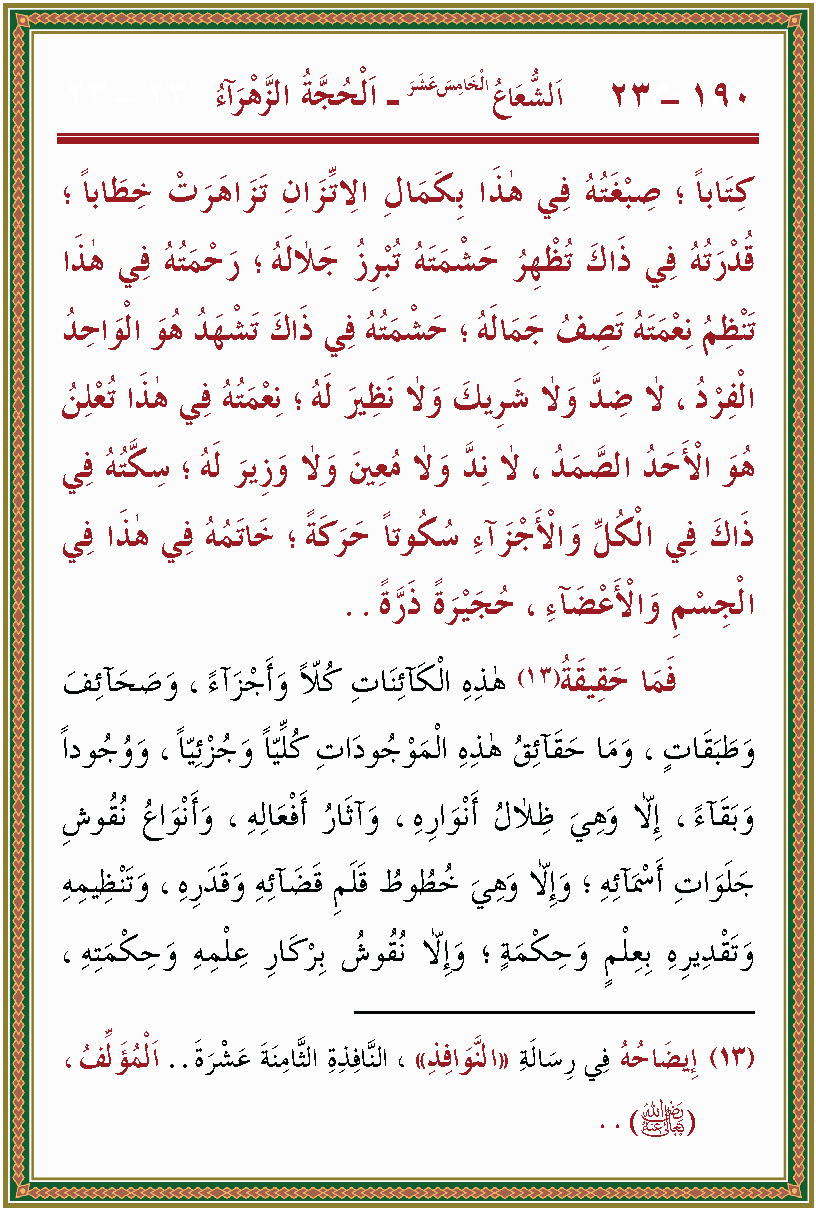 ١٩٠ – ٢٣ اَلشُّعَاعُ الْخَامِسَ عَشَرَ - اَلْحُجَّةُ الزَّهْرَآءُ ٢٣ – ٢٣
كِتَاباً ؛ صِبْغَتُهُ فِي هٰذَا بِكَمَالِ الِاتِّزَانِ تَزَاهَرَتْ خِطَاباً ؛
قُدْرَتُهُ فِي ذَاكَ تُظْهِرُ حَشْمَتَهُ تُبْرِزُ جَلَالَهُ ؛ رَحْمَتُهُ فِي هٰذَا
تَنْظِمُ نِعْمَتَهُ تَصِفُ جَمَالَهُ ؛ حَشْمَتُهُ فِي ذَاكَ تَشْهَدُ هُوَ الْوَاحِدُ
الْفِرْدُ ، لَا ضِدَّ وَلَا شَرِيكَ وَلَا نَظِيرَ لَهُ ؛ نِعْمَتُهُ فِي هٰذَا تُعْلِنُ
هُوَ الْأَحَدُ الصَّمَدُ ، لَا نِدَّ وَلَا مُعِينَ وَلَا وَزِيرَ لَهُ ؛ سِكَّتُهُ فِي
ذَاكَ فِي الْكُلِّ وَالْأَجْزَآءِ سُكُوتاً حَرَكَةً ؛ خَاتَمُهُ فِي هٰذَا فِي
الْجِسْمِ وَالْأَعْضَآءِ ، حُجَيْرَةً ذَرَّةً . .
فَمَا حَقِيقَةُ(١٣) هٰذِهِ الْكَآئِنَاتِ كُلّاً وَأَجْزَآءً ، وَصَحَآئِفَ
وَطَبَقَاتٍ ، وَمَا حَقَآئِقُ هٰذِهِ الْمَوْجُودَاتِ كُلِّيّاً وَجُزْئِيّاً ، وَوُجُوداً
وَبَقَآءً ، إِلَّا وَهِيَ ظِلَالُ أَنْوَارِهِ ، وَآثَارُ أَفْعَالِهِ ، وَأَنْوَاعُ نُقُوشِ
جَلَوَاتِ أَسْمَآئِهِ ؛ وَإِلَّا وَهِيَ خُطُوطُ قَلَمِ قَضَآئِهِ وَقَدَرِهِ ، وَتَنْظِيمِهِ
وَتَقْدِيرِهِ بِعِلْمٍ وَحِكْمَةٍ ؛ وَإِلَّا نُقُوشُ بِرْكَارِ عِلْمِهِ وَحِكْمَتِهِ ،
(١٣) إِيضَاحُهُ فِي رِسَالَةِ «النَّوَافِذِ» ، النَّافِذَةِ الثَّامِنَةَ عَشْرَةَ . . اَلْمُؤَلِّفُ ،
(رضي الله تعالى عنه) . .